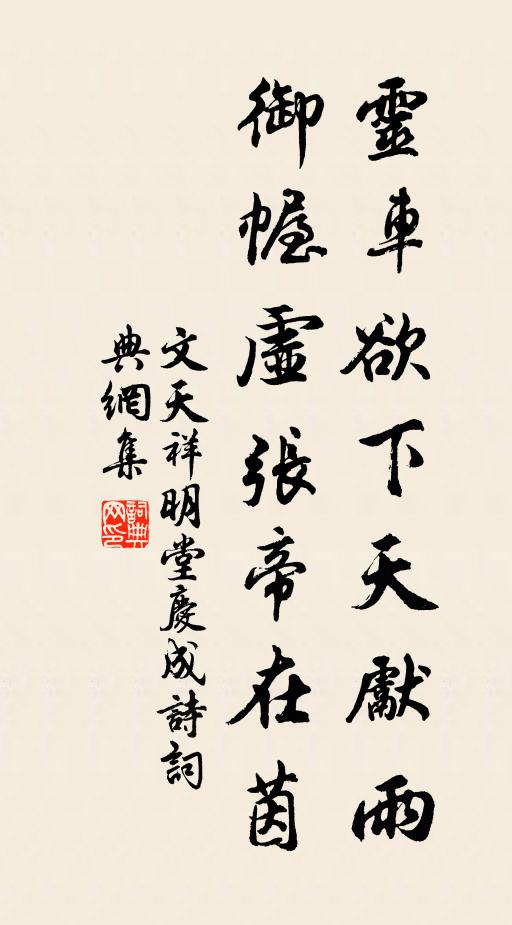 靈車欲下天獻雨
御幄虛張帝在茵
文天祥明堂慶成詩詞
典網集
詞典網印